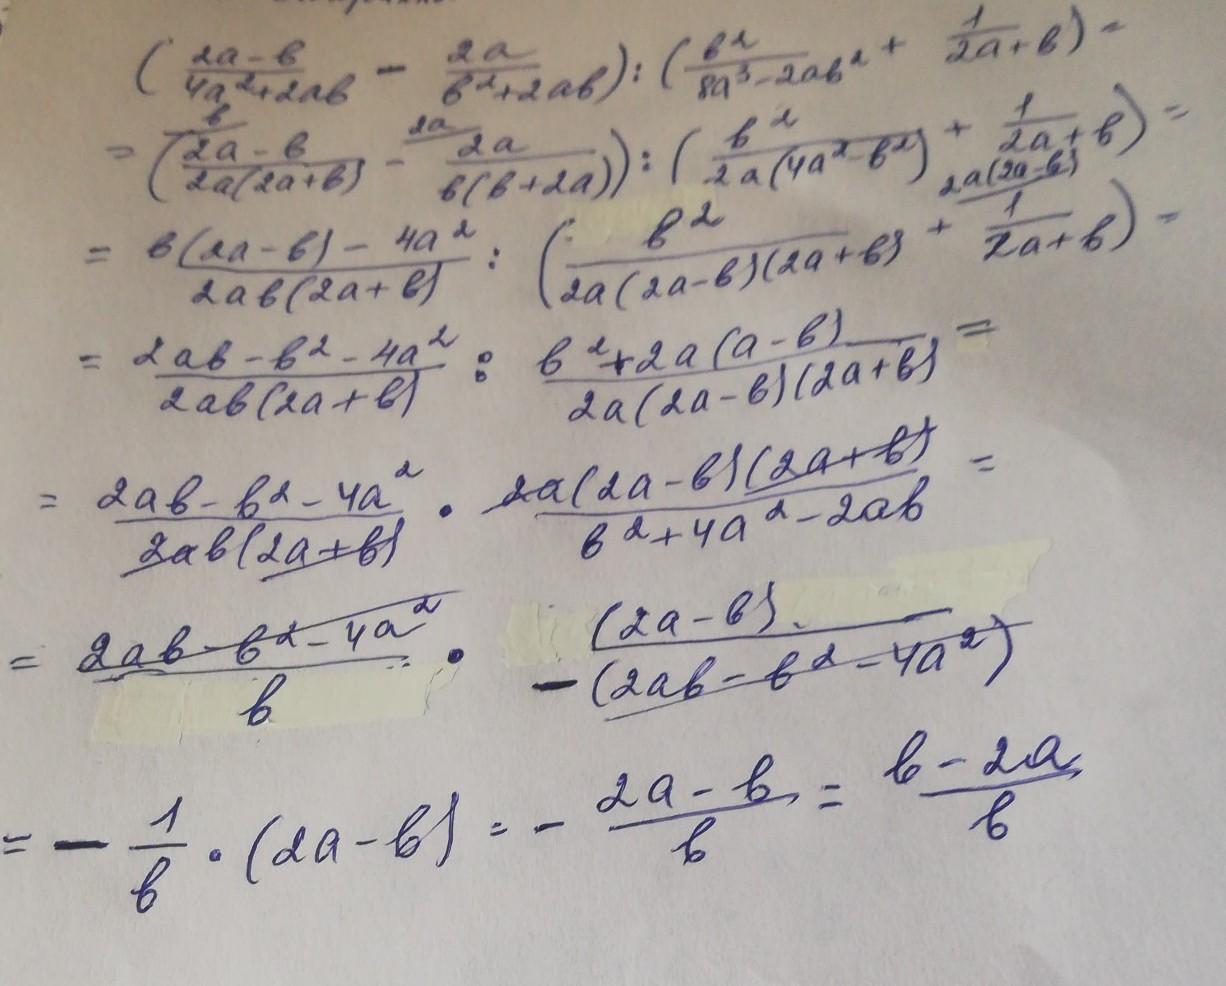 (2a-b/4a²+2ab - 2a/b²+2ab) : (b²/8a³-2ab² + 1/2a+b) =
= (b 2a-b/2a(2a+b) - 2a 2a/b(b+2a)) : (b²/2a(4a²-b²) + 1/2a+b) =
= b(2a-b)-4a²/2ab(2a+b) : (b²/2a(2a-b)(2a+b) + 2a(2a-b) 1/2a+b) =
= 2ab-b²-4a²/2ab(2a+b) : b²+2a(a-b)/2a(2a-b)(2a+b) =
= 2ab-b²-4a²/2ab(2a+b) · 2a(2a-b)(2a+b)/b²+4a²-2ab =
= 2ab-b²-4a²/b · (2a-b)/-(2ab-b²-4a²)
= - 1/b · (2a-b) = - 2a-b/b = b-2a/b